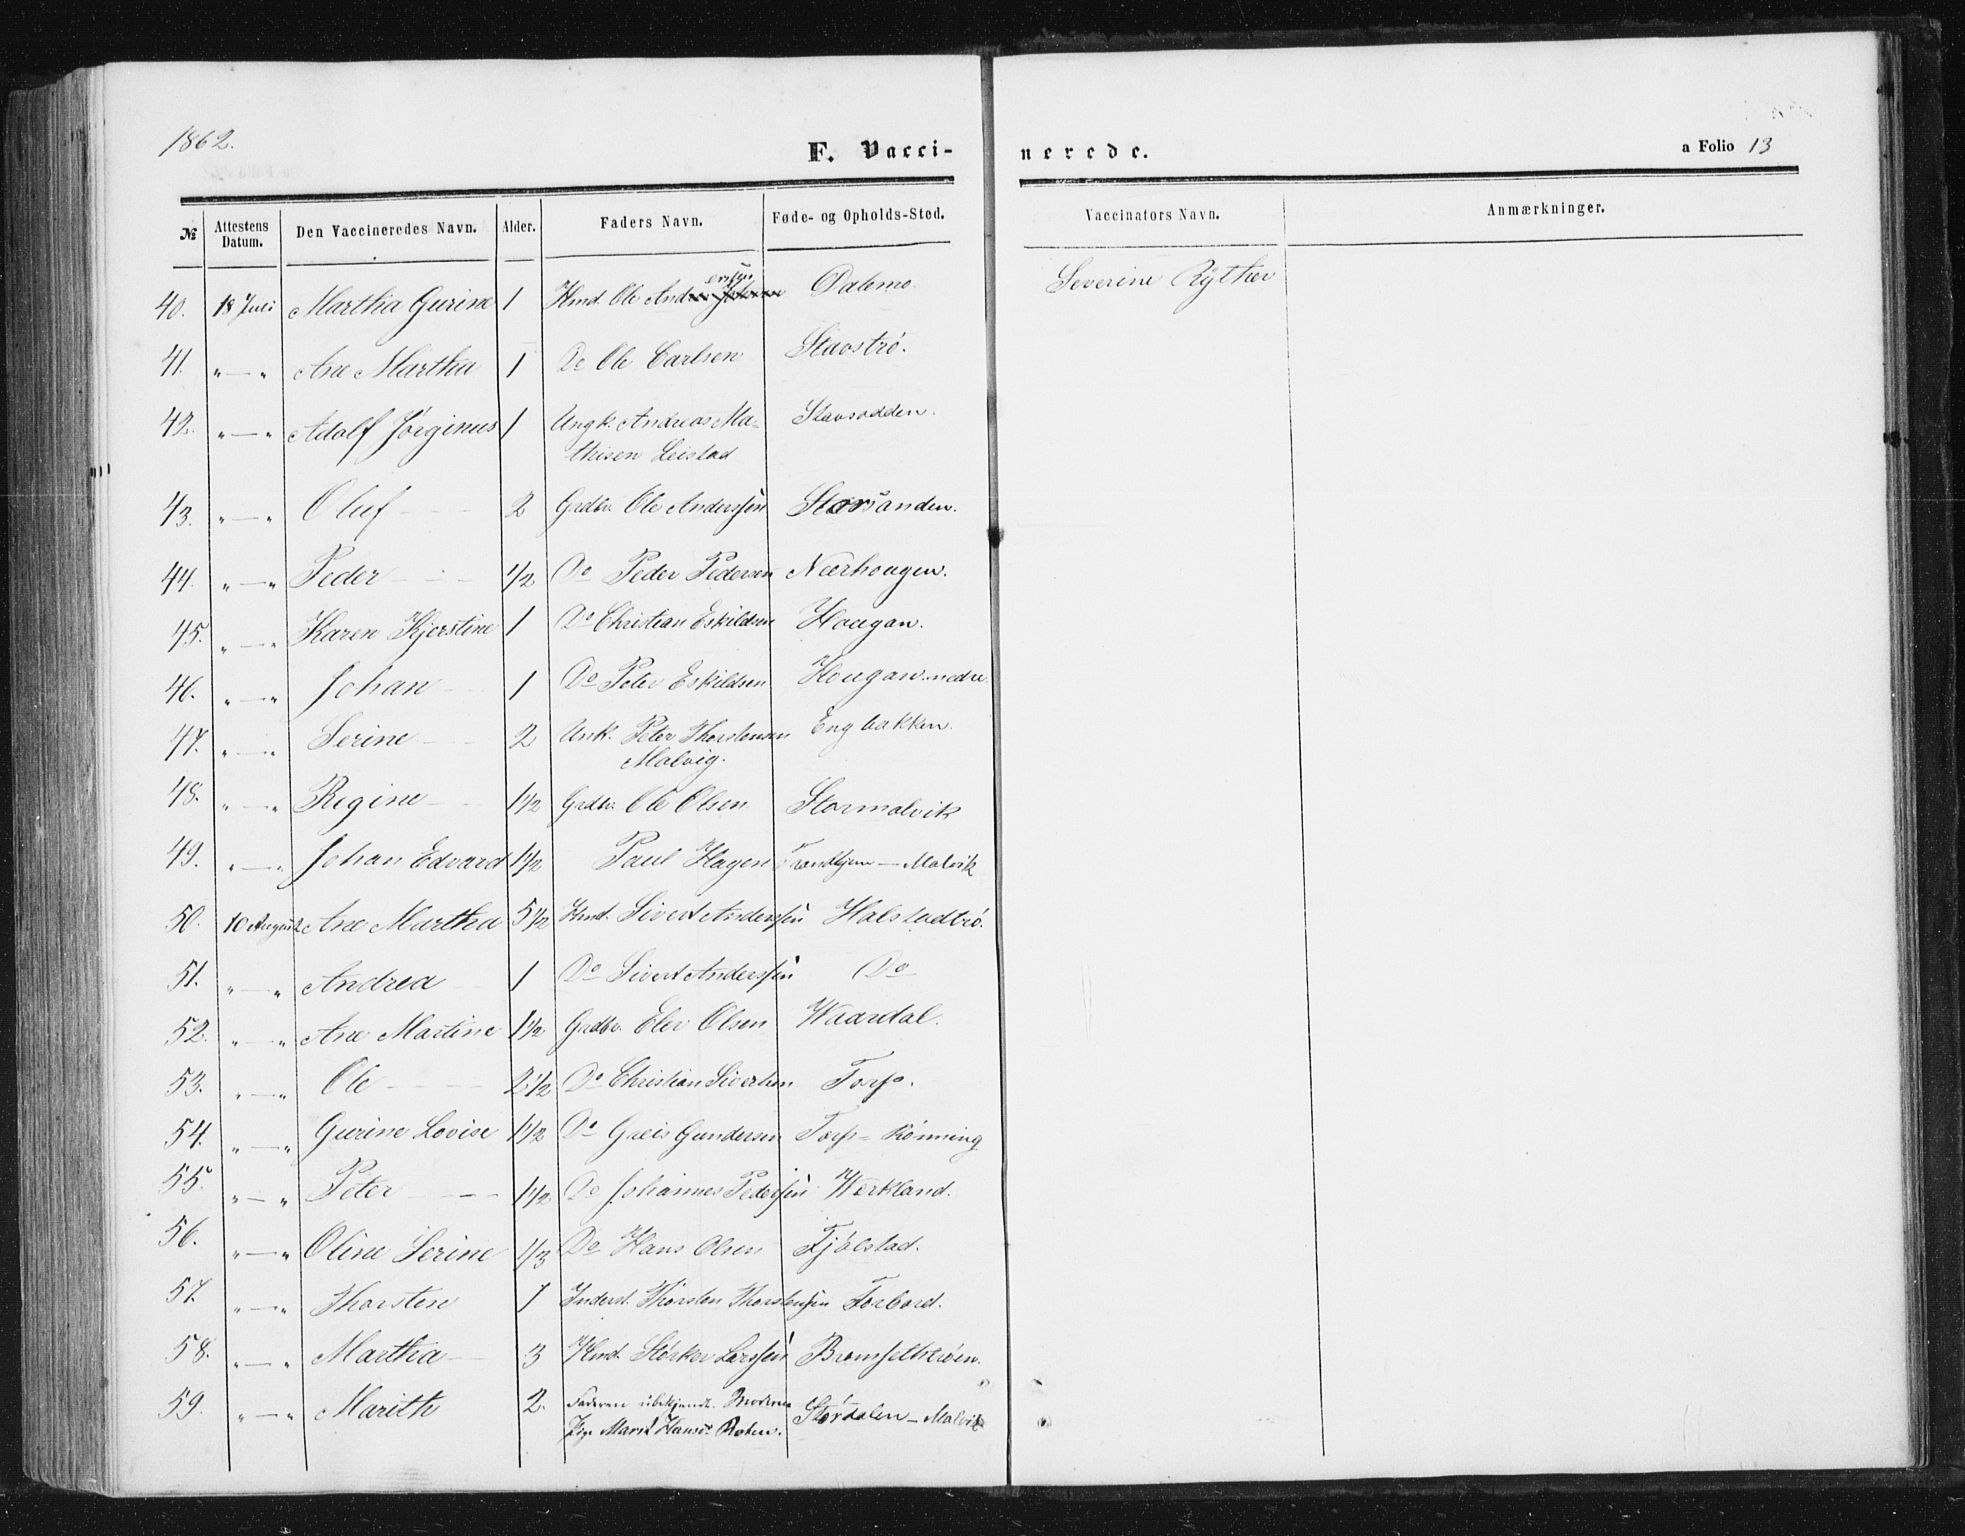 1862.
F. Vacci- nerede. a Folio 13
№ Attestens Datum. Den Vaccineredes Navn. Alder. Faders Navn. Føde- og Opholds-Sted. Vaccinators Navn. Anmærkninger.
40. 18 Juli Martha Gurine 1 Hmd. Ole Andersen Dalemo Severine Ryther
41. " — " Ane Martha 1 Do Ole Carlsen Stavstrø.
42. " — " Adolf Jørginus 1 Ungk. Andreas Ma-
thisen Leistad Stavsodden.
43. " — " Oluf 2 Grdbr. Ole Anderssen Storsanden.
44. " — " Peder 1/2 Do Peder Pedersen Nærhougen.
45. " — " Karen Kjerstine 1 Do Christian Eskildsen Hougan.
46. " — " Johan 1 Do Peter Eskildsen Hougan nedre
47. " — " Serine 2 Unk. Peter Thorstensen
Malvig. Engbakken.
48. " — " Regine 1 1/2 Grdbr. Ole Olsen Stormalvik
49. " — " Johan Edvard 1 1/2 Paul Hagen Trondhjem — Malvik
50. 10 August Ane Martha 5 1/2 Hmd. Sivert Anderssen Halstadtrø.
51. " — " Andrea 1 Do Sivert Anderssen Do
52. " — " Ane Martine 1 1/2 Grdbr. Elev Olsen Waardal.
53. " — " Ole 2 1/2 Do Christian Sivertsen Torp.
54. " — " Gurine Lovise 1 1/2 Do Greis Gundersen Torp = Rønning
55. " — " Peter 1 1/2 Do Johannes Pederssen Werkland.
56. " — " Oline Serine 1/3 Do Hans Olsen Fjølstad.
57. " — " Thorsten 1 Inderst. Thorsten Thorstenssen Forbord.
58. " — " Martha 3 Hmd. Størker Larssen Bromseltrøen.
59. " — " Marith 2. Faderen ubekjendt. Moderen
Pige Marit Hansd. Roten. Størdalen — Malvik